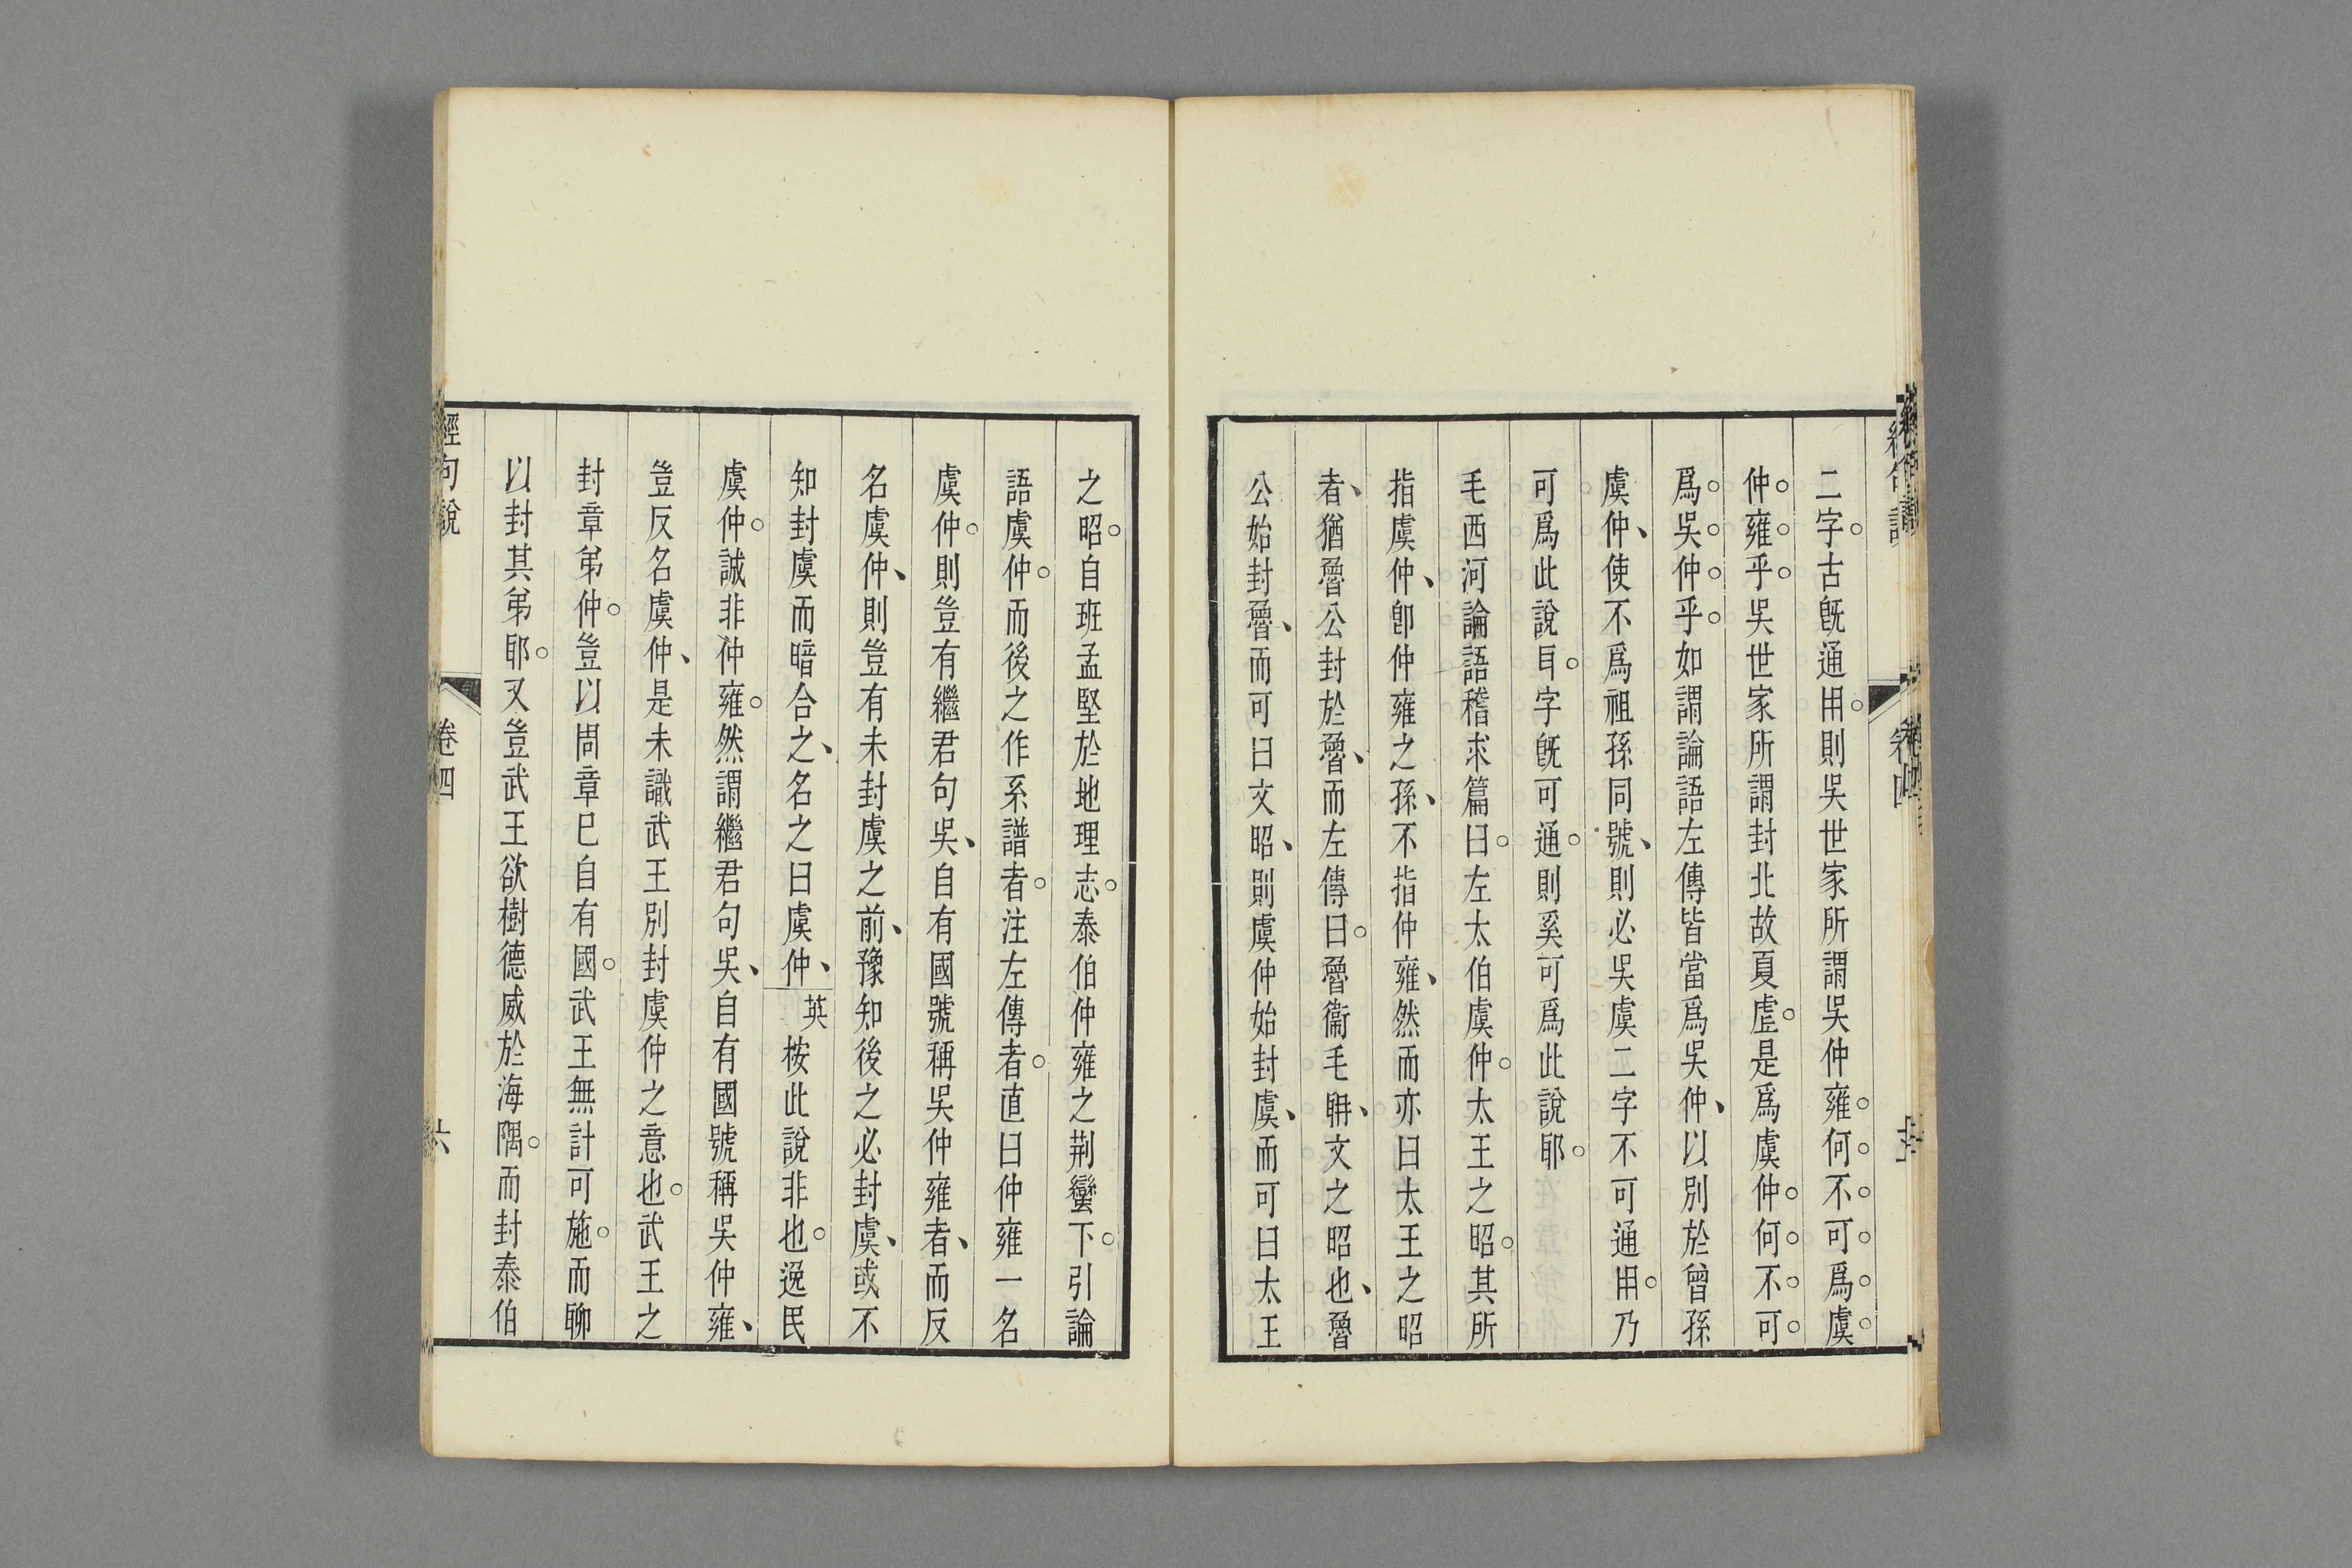 二字。古旣通用。則吳世家所謂吳仲雍。何。不。可。爲。虞。
仲。雍。乎。吳世家所謂封北故夏虛。是爲虞仲。何。不。可。
爲。吳。仲。乎。如謂論語左傳皆當爲吳仲、以別於曾孫
虞仲、使不爲祖孫同號、則必吳虞二字不可通用。乃
可爲此說耳。字旣可通。則奚可爲此說耶。
毛西河論語稽求篇曰。左太伯虞仲。太王之昭。其所
指虞仲、卽仲雍之孫、不指仲雍、然而亦曰太王之昭
者、猶魯公封於魯、而左傳曰。魯衞毛聃、文之昭也、魯
公始封魯、而可曰文昭、則虞仲始封虞、而可曰太王
之昭。自班孟堅於地理志。泰伯仲雍之荆蠻下。引論
語虞仲。而後之作系譜者。注左傳者。直曰仲雍一名
虞仲。則豈有繼君句吳、自有國號稱吳仲雍者、而反
名虞仲、則豈有未封虞之前、豫知後之必封虞、或不
知封虞而暗合之、名之曰虞仲、英按此說非也。逸民
虞仲。誠非仲雍。然謂繼君句吳、自有國號稱吳仲雍、
豈反名虞仲、是未識武王別封虞仲之意也。武王之
封章弟仲。豈以周章已自有國。武王無計可施。而聊
以封其弟耶。又豈武王欲樹德威於海隅。而封泰伯
經句說
卷四
六